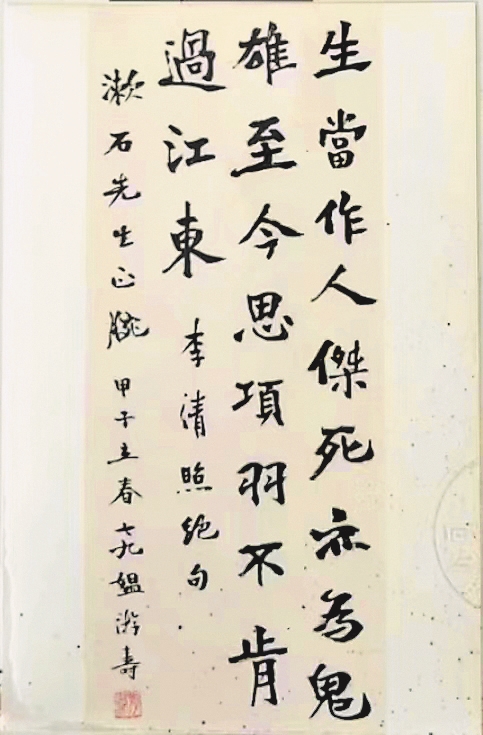 生當作人傑死亦為鬼
雄至今思項羽不肯
過江東 李清照絕句
漱石先生正腕 甲子立春七九媪游壽